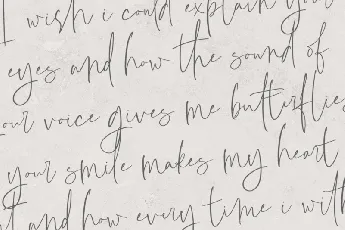 I wish i could explain your
eyes and how the sound of
your voice gives me butterflies
your smile makes my heart
and how every time i wit